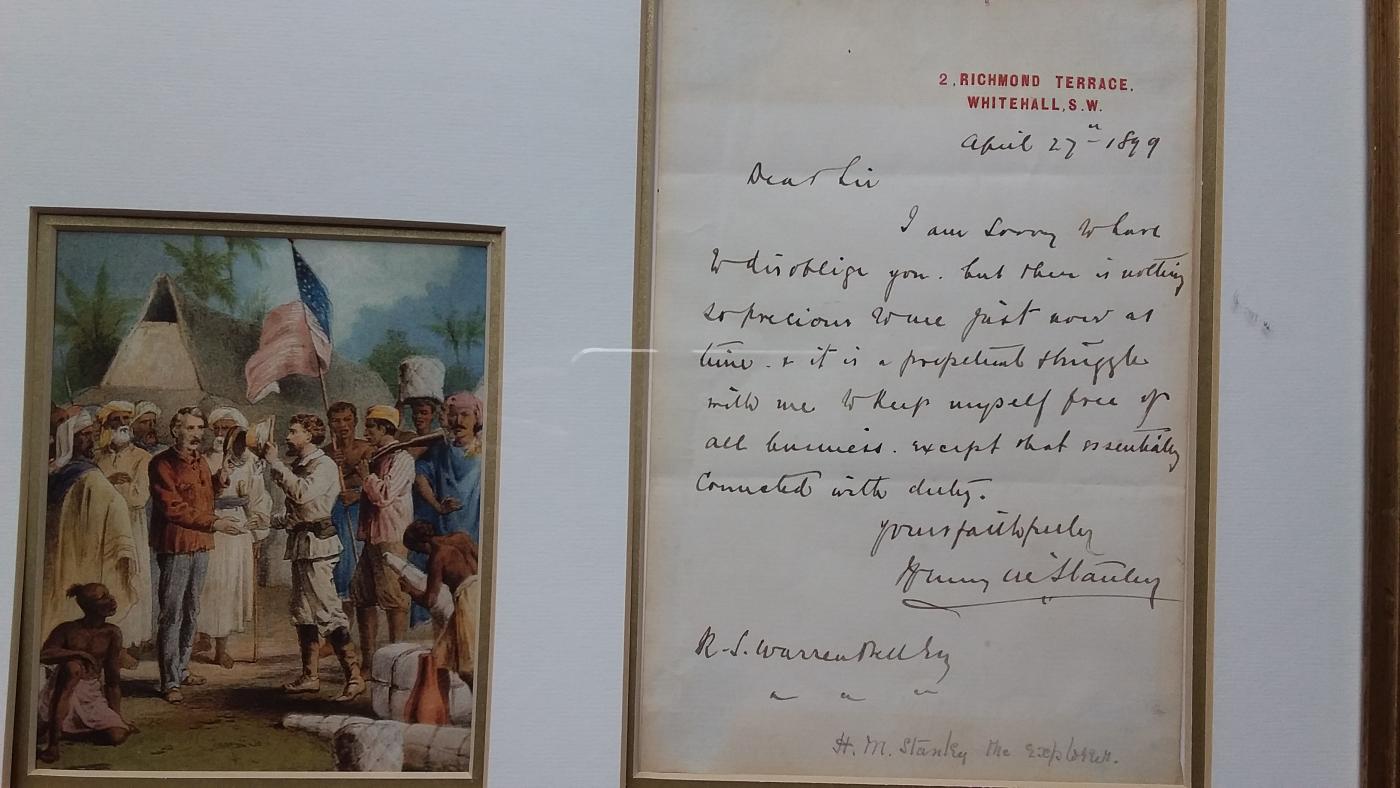 2, RICHMOND TERRACE,
WHITEHALL, S.W.
April 27th 1899
Dear Sir
I am sorry to have
to disoblige you. but there is nothing
so precious to me just now as
time. & it is a perpetual struggle
with me to keep myself free of
all business. except that essentially
connected with duty.
Yours faithfully
Henry M Stanley
R. S. Warren Bell Esq
H. M. Stanley the Explorer.